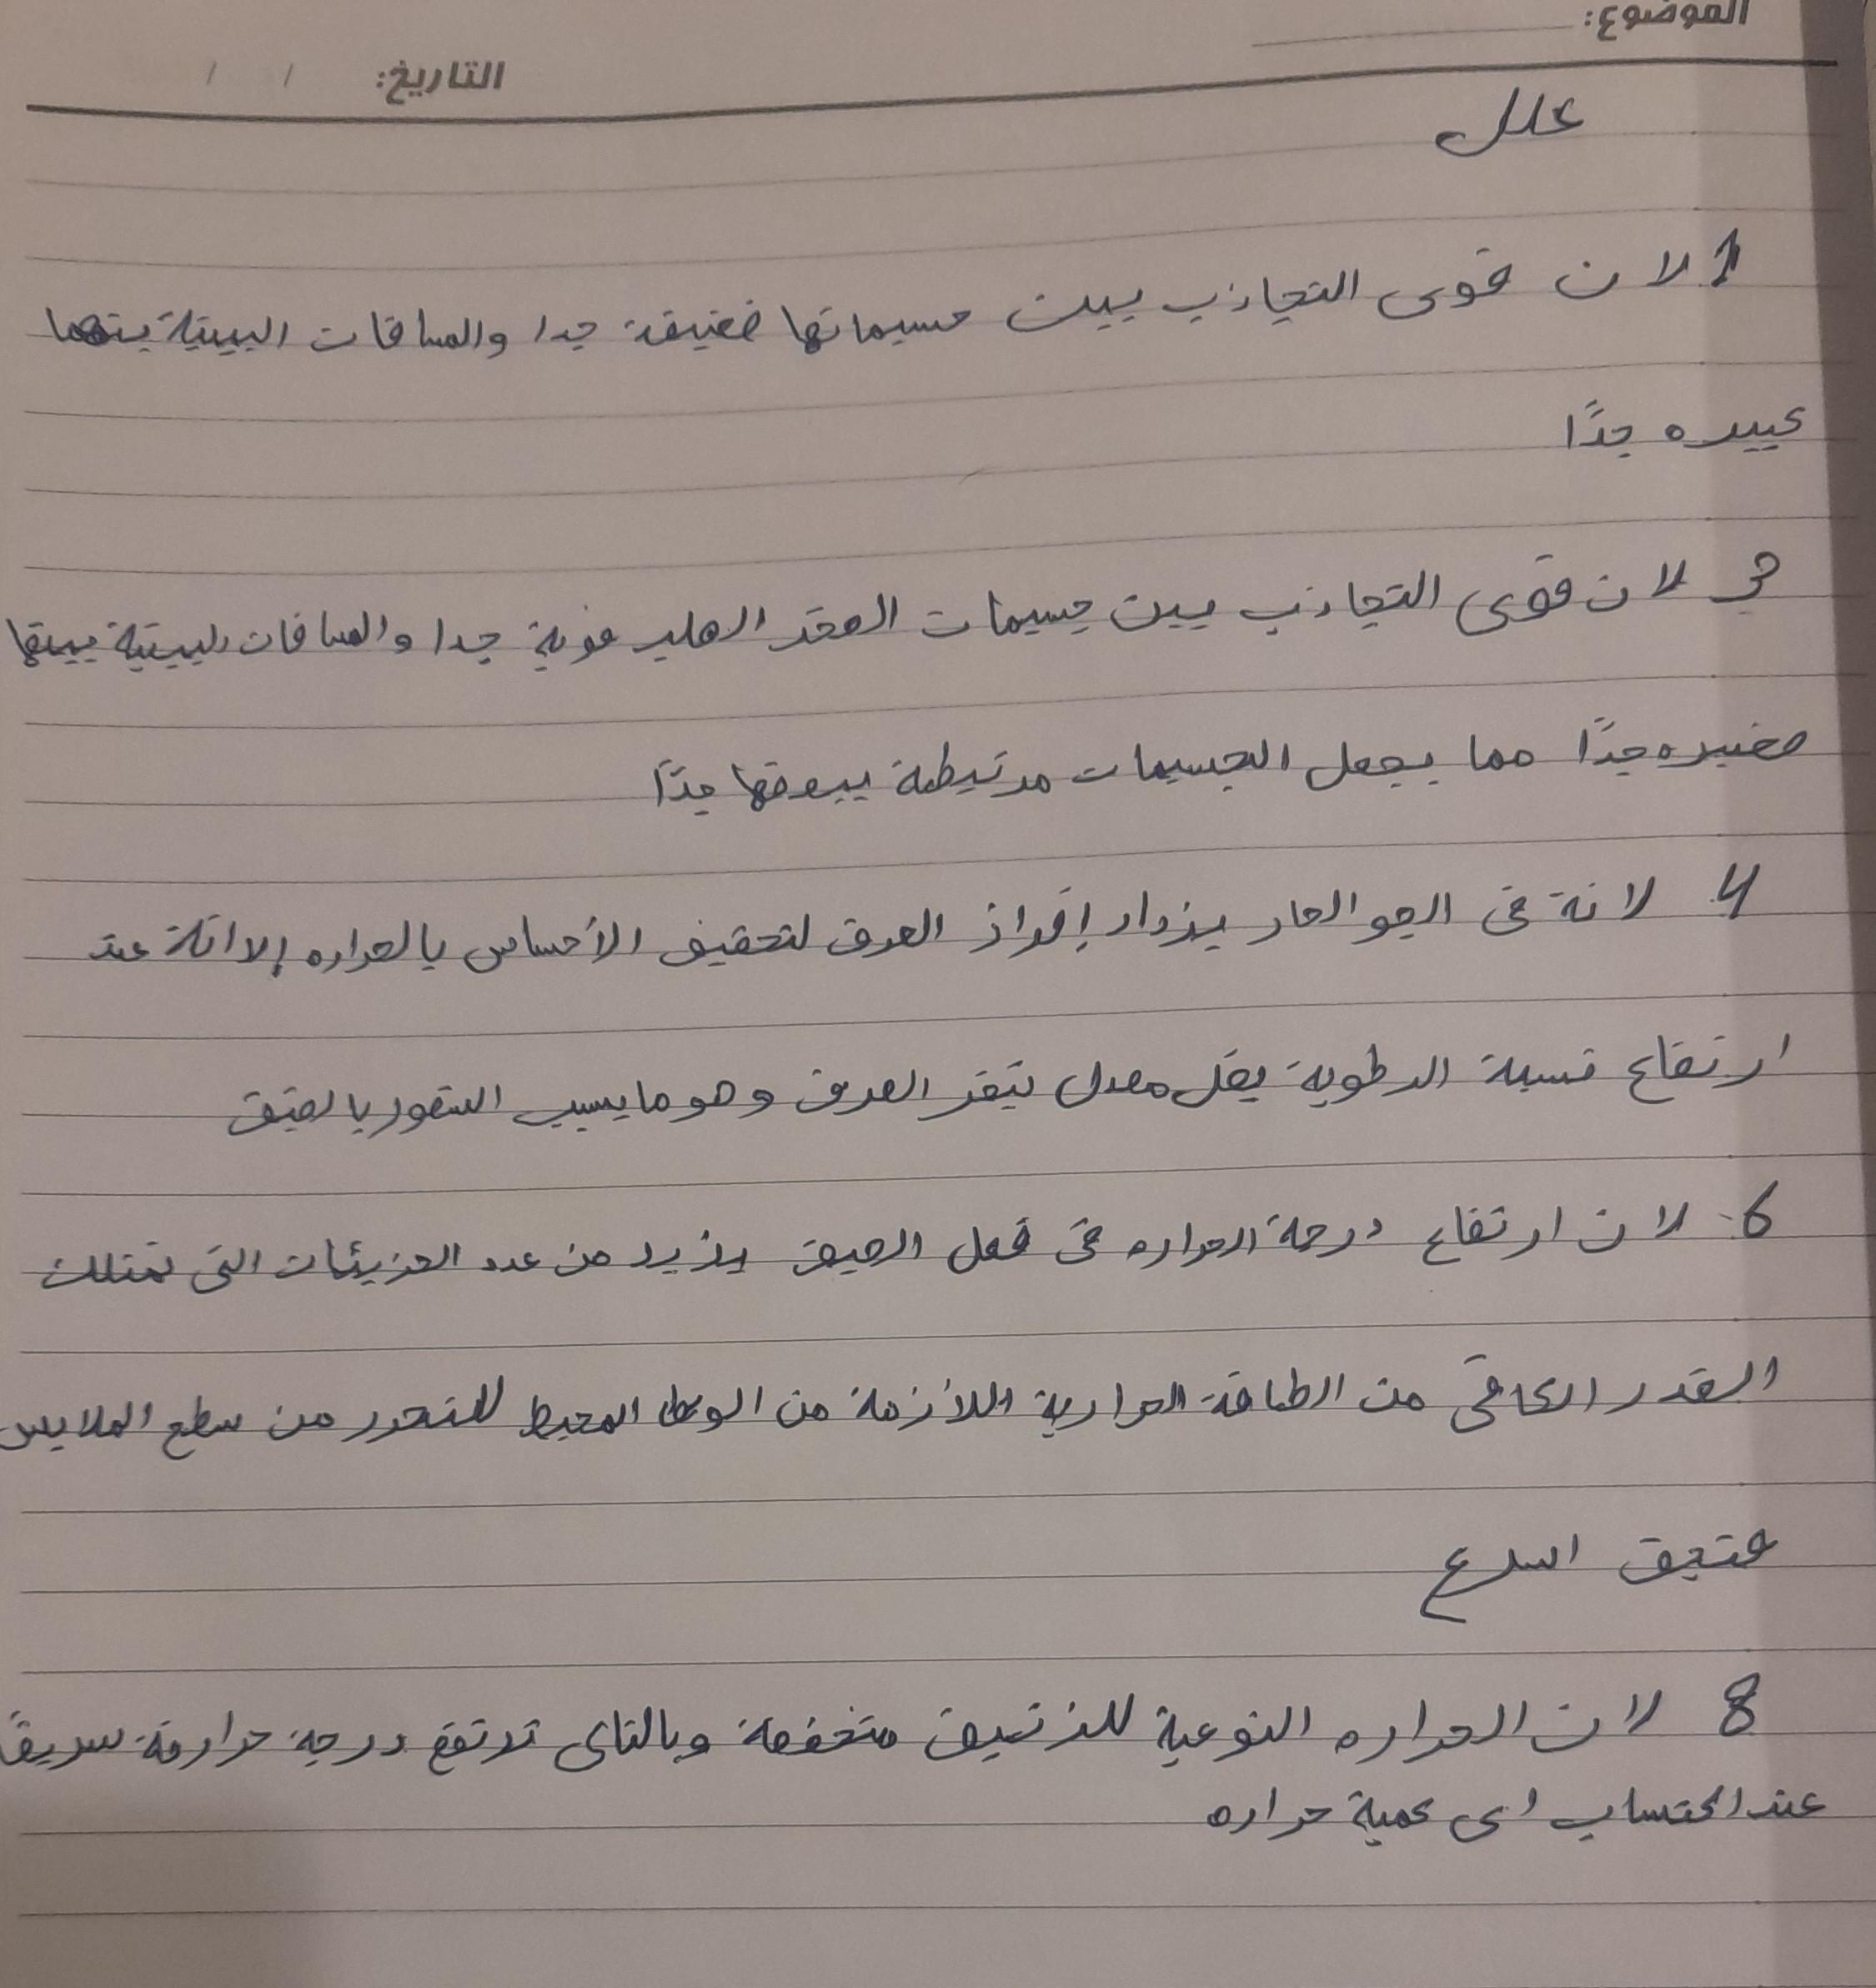 الموضوع:
التاريخ: / /
علل
1 لان قوى التجاذب بين جسيماتها ضعيفة جدا والمسافات البينية بينهما
كبيره جدًا
3 لان قوى التجاذب بين جسيمات الفقد الصلب قوية جدا والمسافات البينية بينها
صغيره جدًا مما يجعل الجسيمات مرتبطة ببعضها جدًا
4 لانة فى الجو الحار يزداد إفراز العرق لتخفيف الأحساس بالحراره إلا انة عند
ارتفاع نسبة الرطوبة يقل معدل تبخر العرق وهو ما يسبب الشعور بالضيق
6- لان ارتفاع درجة الحراره فى فصل الصيف يزيد من عدد الجزيئات التى تمتلك
القدر الكافى من الطاقة الحرارية اللأزمة من الوسط المحيط للتحرر من سطح الملابس
فتجف اسرع
8 لان الحراره النوعية للزئبق منخفضة وبالتالى ترتفع درجة حرارته سريعًا
عند اكتساب اى كمية حراره